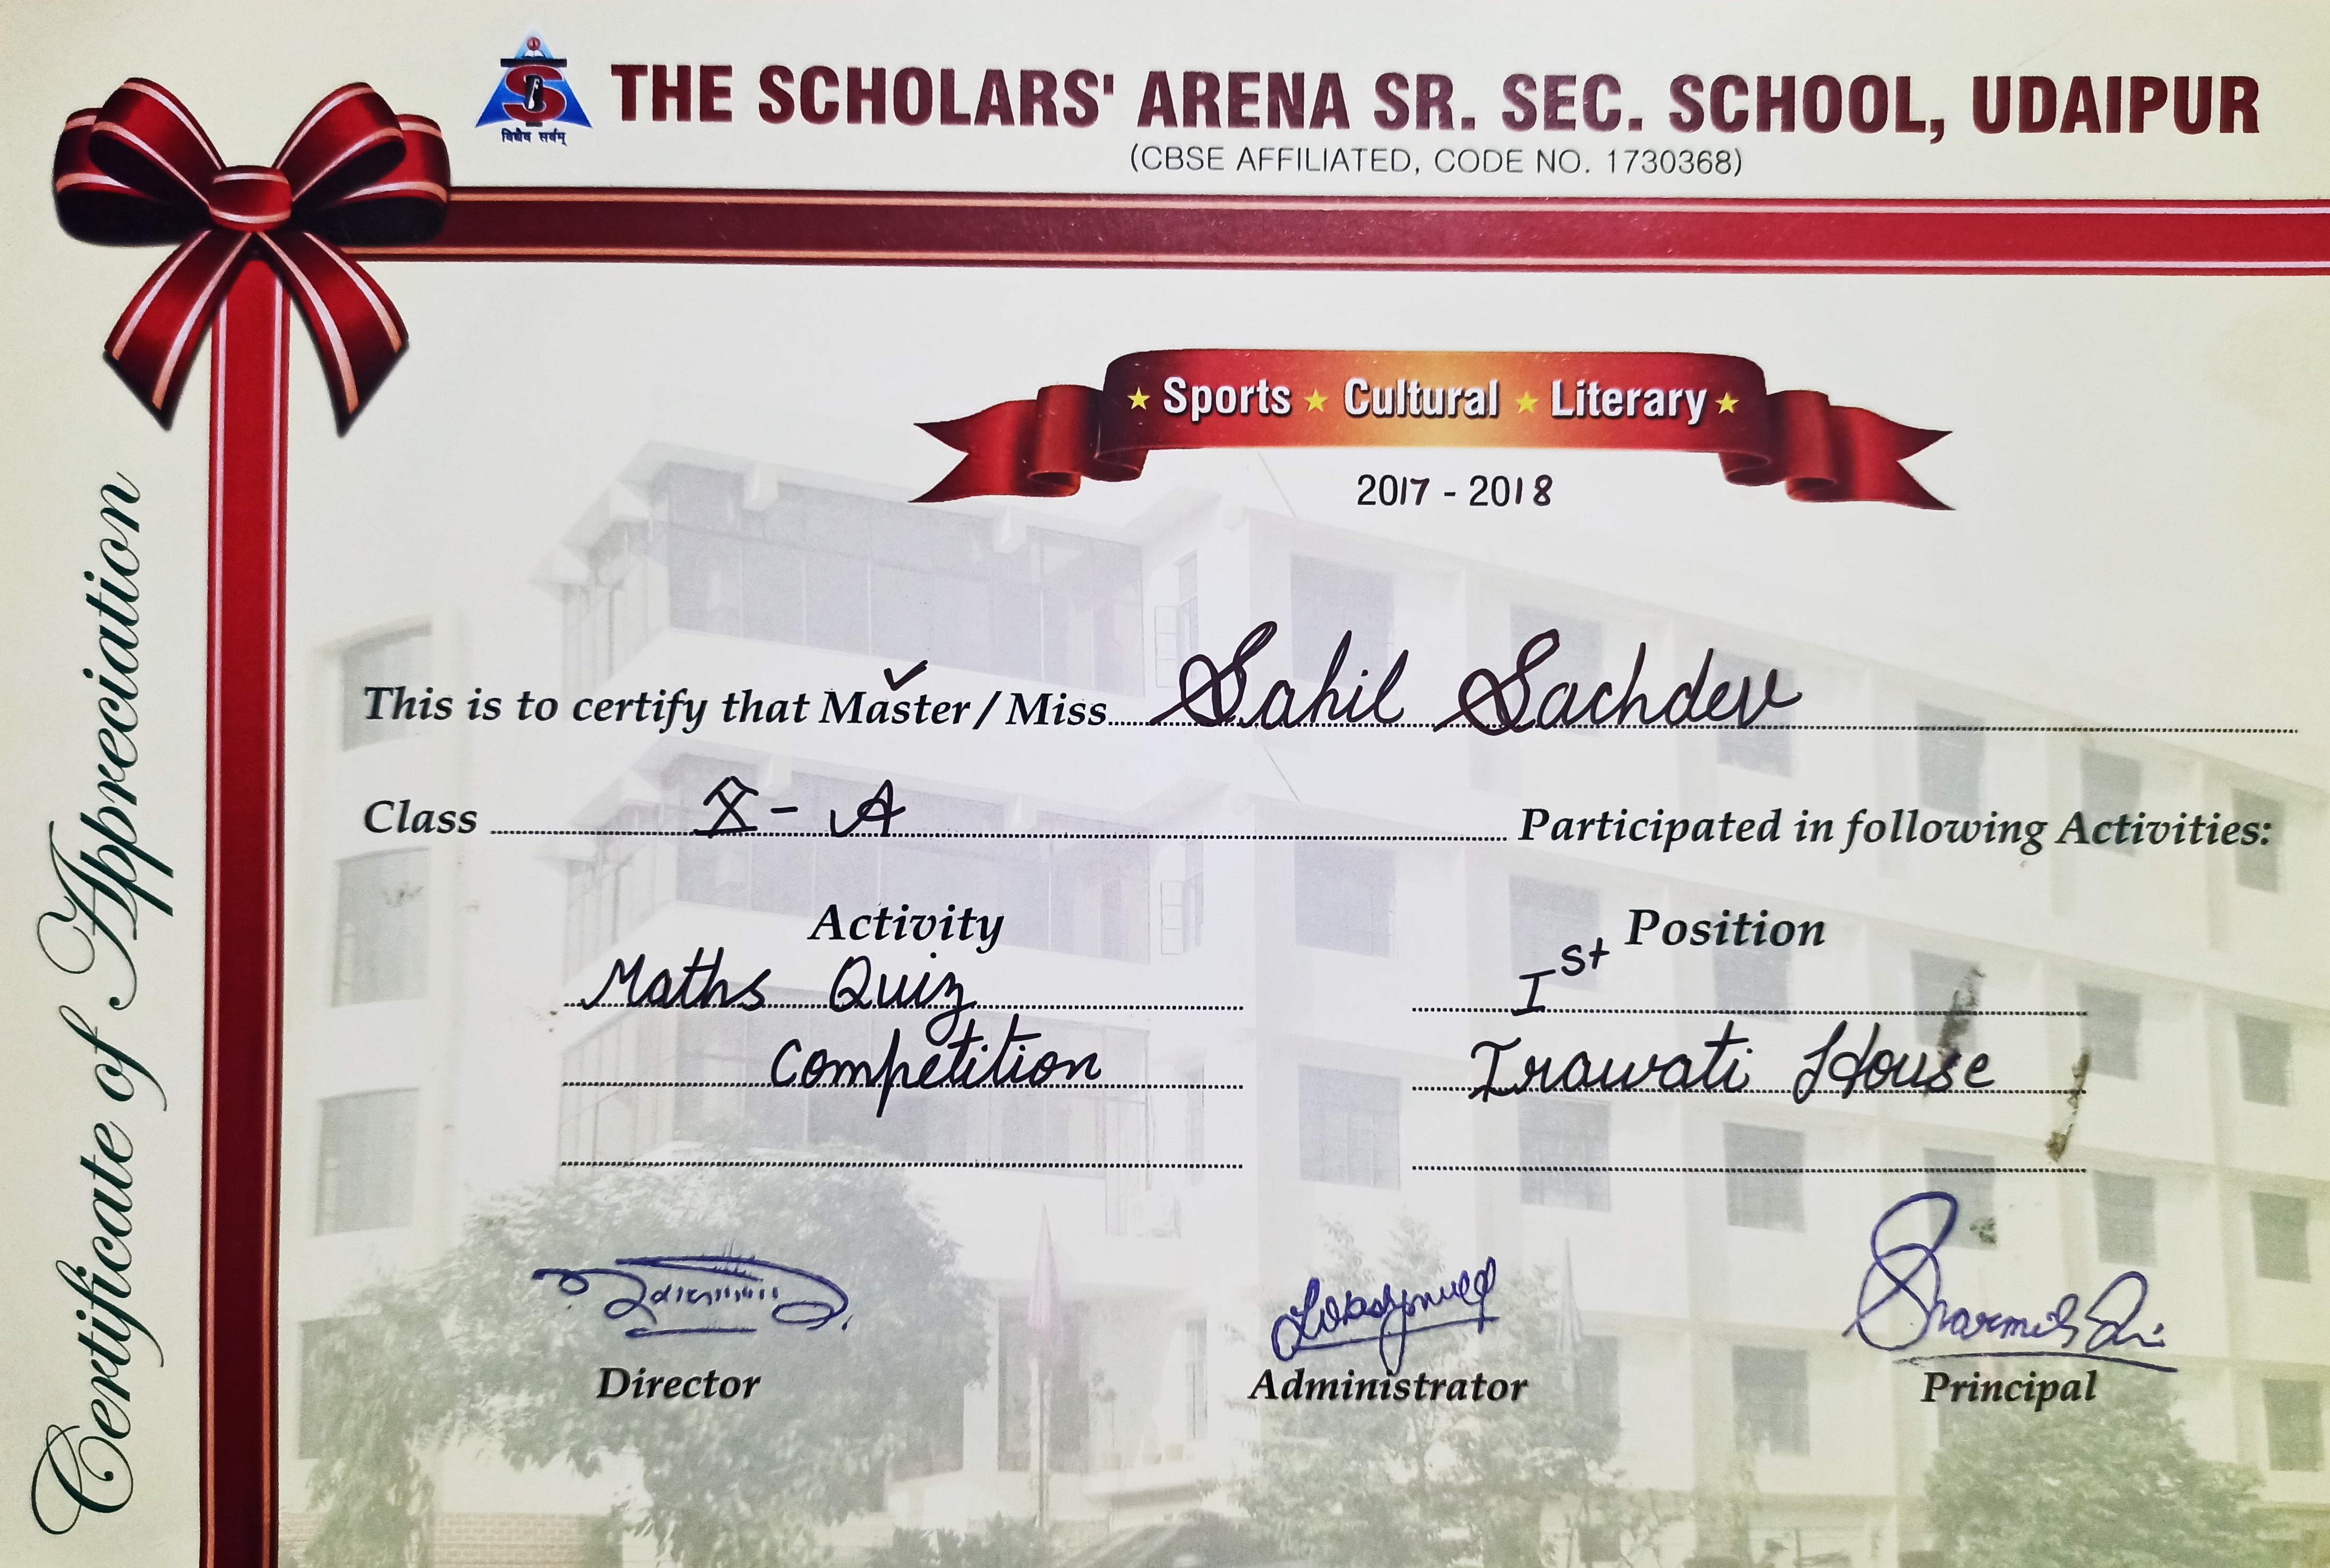 विद्यैव सर्वम्
THE SCHOLARS' ARENA SR. SEC. SCHOOL, UDAIPUR
(CBSE AFFILIATED, CODE NO. 1730368)
Certificate of Appreciation
Sports Cultural Literary
2017 - 2018
This is to certify that Master / Miss Sahil Sachdev
Class X - A Participated in following Activities:
Activity Position
Maths Quiz Ist
Competition Irawati House
Director Administrator Principal